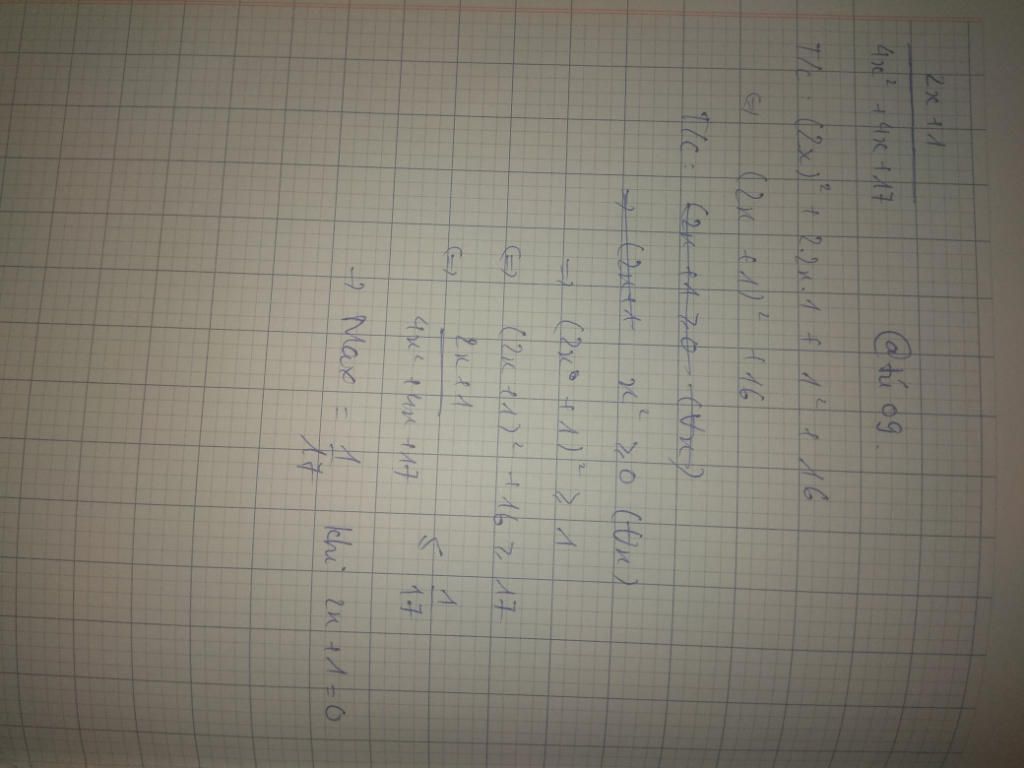 2x+1
4x² + 4x + 17
@tú 09.
T/c: (2x)² + 2.2x.1 + 1² + 16
⇔ (2x + 1)² + 16
T/c: (2x+1 ≥ 0 (∀x)
→ (2x+1 x² ≥ 0 (∀x)
→ (2x + 1)² ≥ 1
⇔ (2x + 1)² + 16 ≥ 17
⇔ 2x+1
4x² + 4x + 17 ≤ 1
17
→ Max = 1
17 khi 2x + 1 = 0